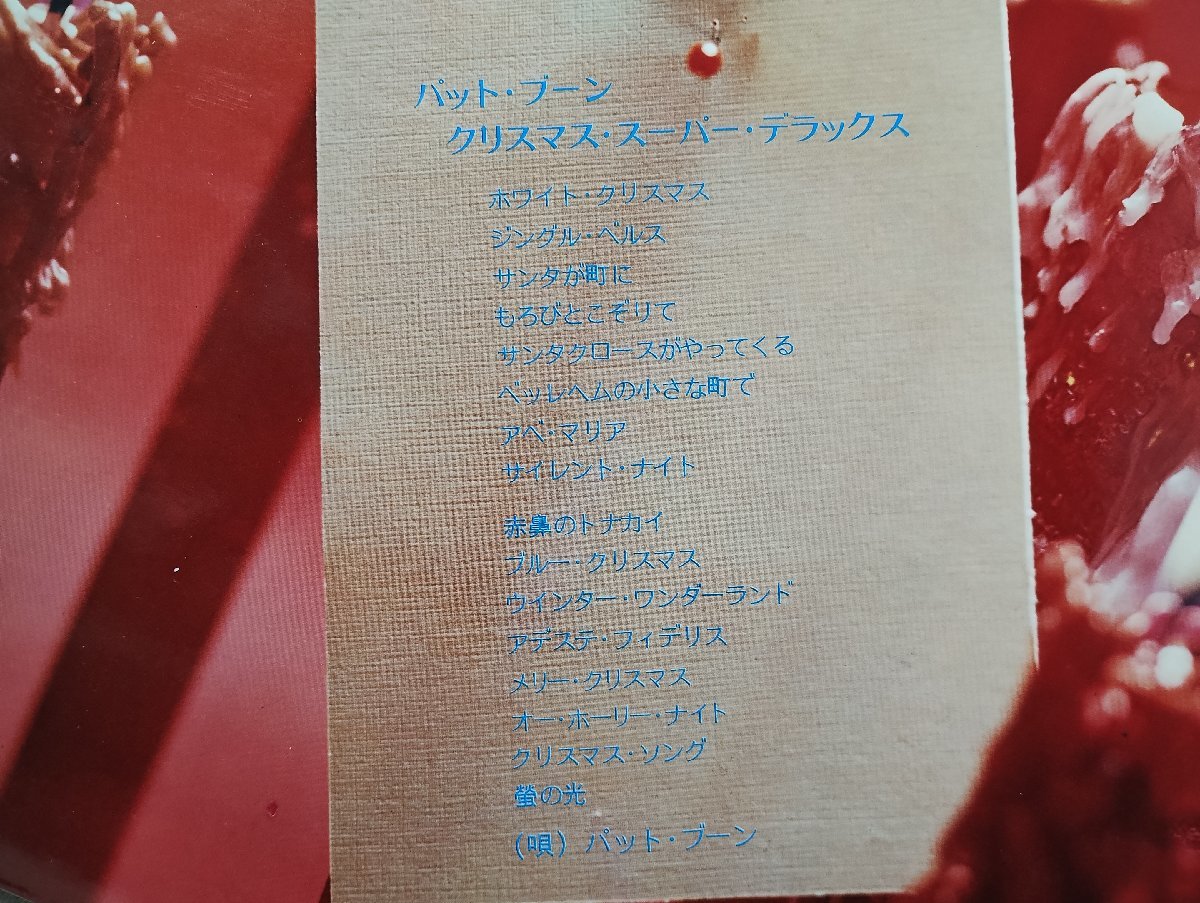 パット・ブーン
クリスマス・スーパー・デラックス
ホワイト・クリスマス
ジングル・ベルス
サンタが町に
もろびとこぞりて
サンタクロースがやってくる
ベツレヘムの小さな町で
アベ・マリア
サイレント・ナイト
赤鼻のトナカイ
ブルー・クリスマス
ウインター・ワンダーランド
アデステ・フィデリス
メリー・クリスマス
オー・ホーリー・ナイト
クリスマス・ソング
螢の光
(唄) パット・ブーン